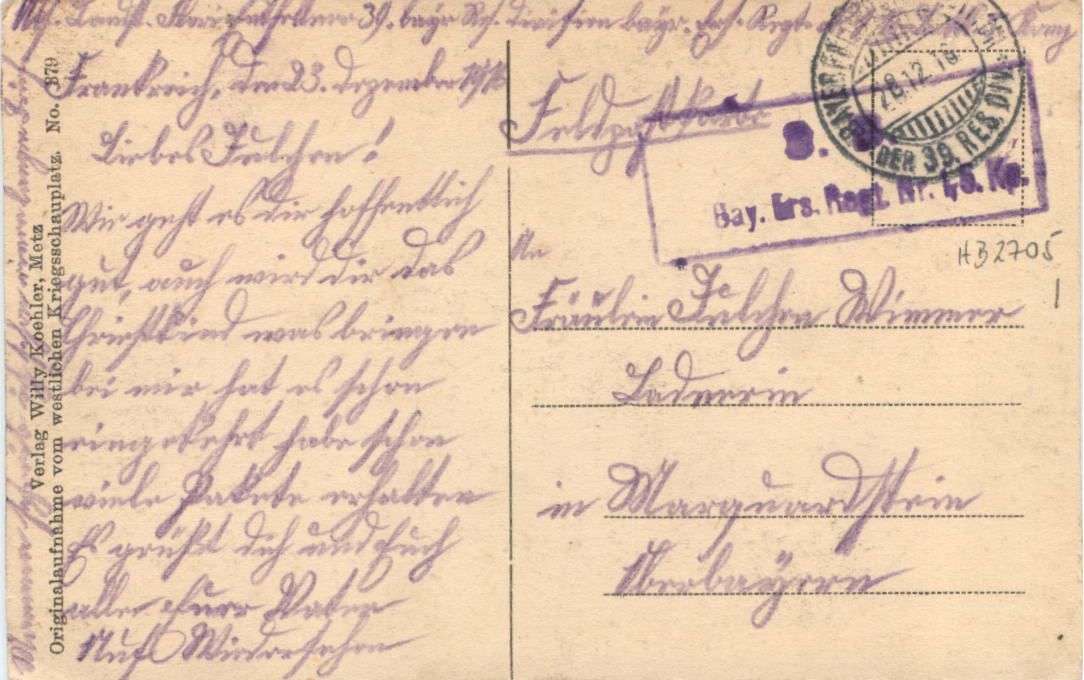 Landst. 39. bayr. Res. Division bayr. Ers. Regt.
Frankreich, den 23. Dezember
Liebes Julchen!
Wie geht es dir hoffentlich
gut, auch wird dir das
Christkind was bringen
bei mir hat es schon
eingekehrt habe schon
viele Pakete erhalten
Es grüßt dich und Euch
alle Euer Vater
Auf Wiedersehen
Verlag Willy Koehler, Metz
Originalaufnahme vom westlichen Kriegsschauplatz. No. 379
Feldpostkarte
28.12.16
DER 39. RES. DIV.
S. B.
Bay. Ers. Regt. Nr. 1, 8. Kp.
HB2705
An
Fräulein Julchen Wimmer
Ladnerin
in Marquardstein
Oberbayern